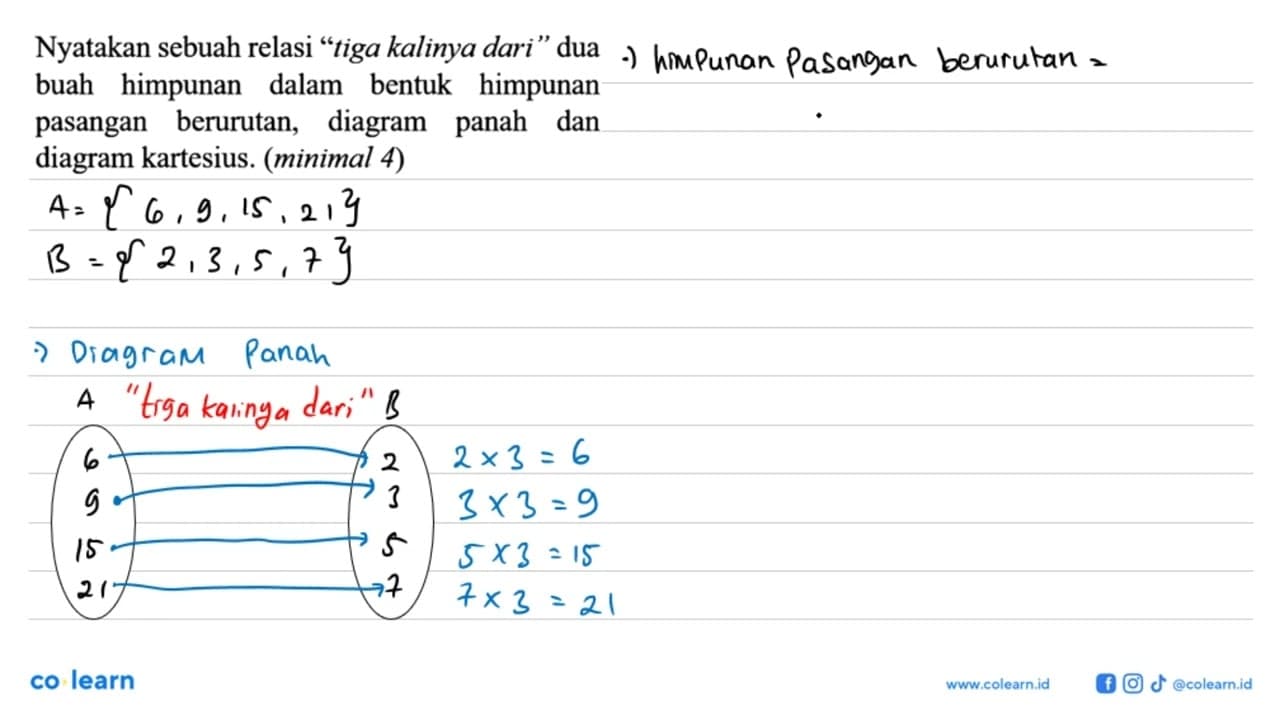 Nyatakan sebuah relasi “tiga kalinya dari” dua
buah himpunan dalam bentuk himpunan
pasangan berurutan, diagram panah dan
diagram kartesius. (minimal 4)
A = { 6, 9, 15, 21 }
B = { 2, 3, 5, 7 }
·) Diagram Panah
A "tiga kalinya dari" B
6 2 2 × 3 = 6
9 3 3 × 3 = 9
15 5 5 × 3 = 15
21 7 7 × 3 = 21
·) himpunan Pasangan berurutan =
co learn
www.colearn.id
@colearn.id